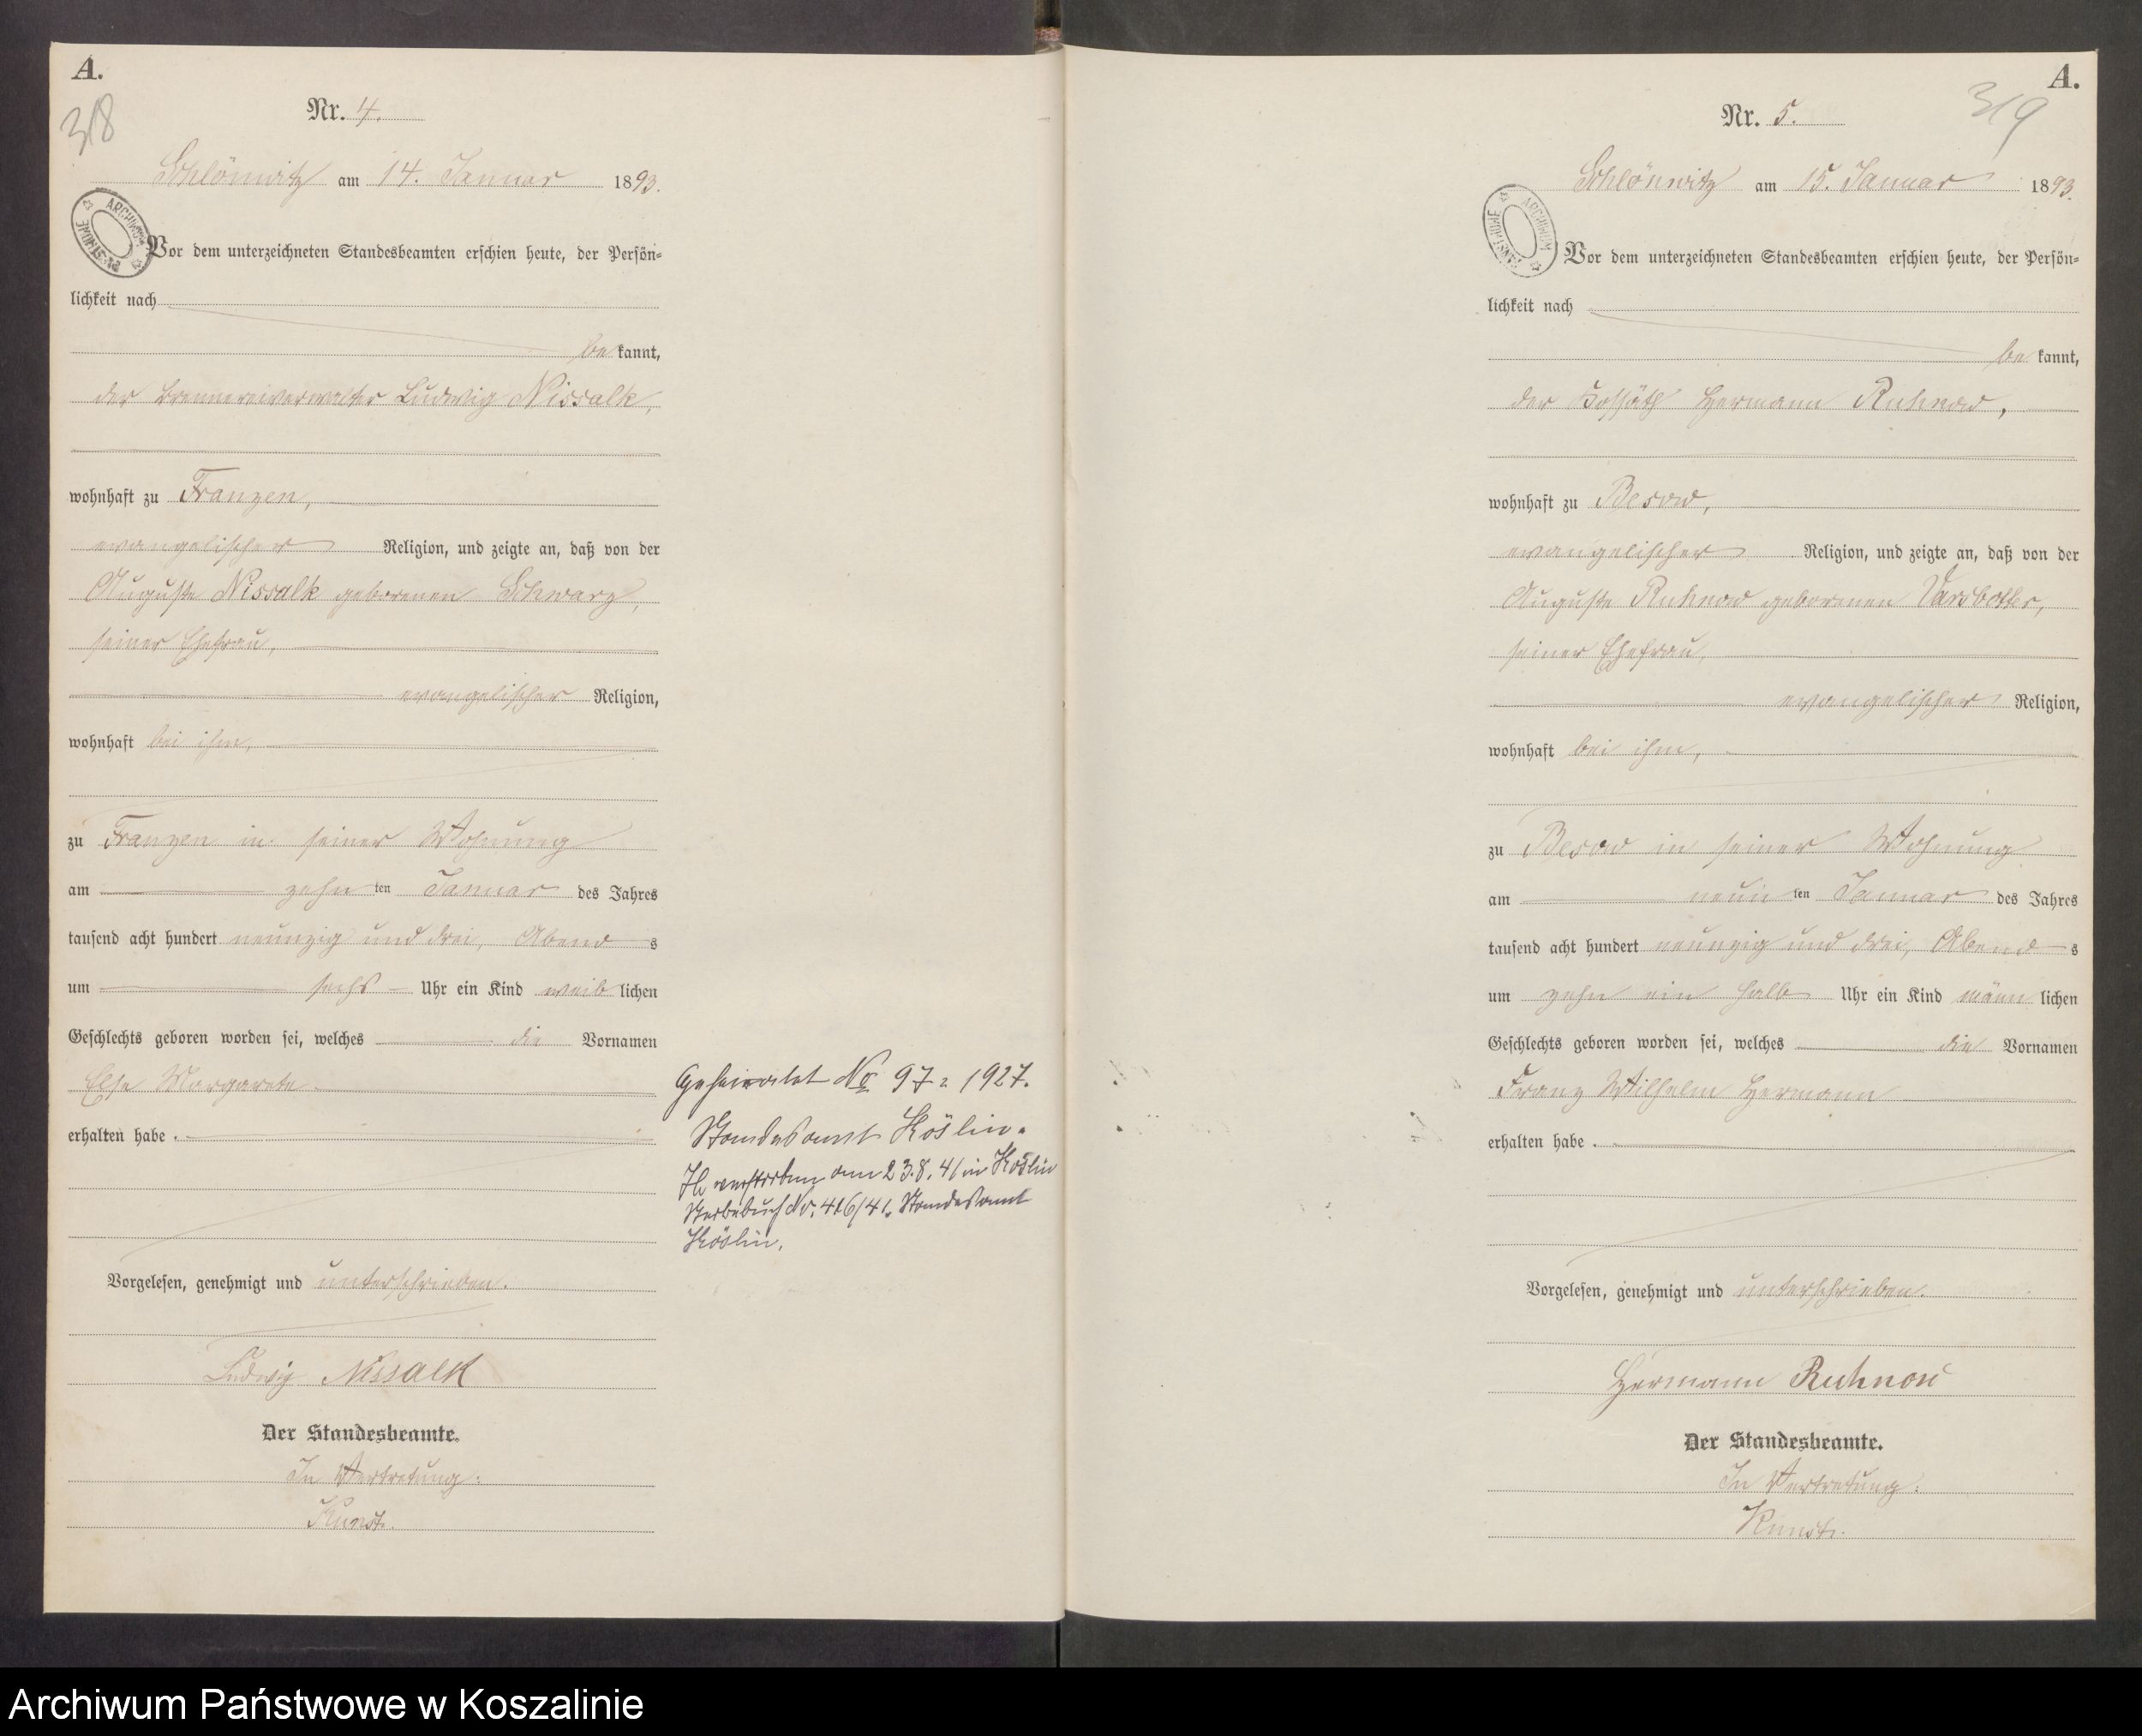 A.
318
Nr. 4.
Schlönwitz am 14. Januar 1893.
Vor dem unterzeichneten Standesbeamten erschien heute, der Persön-
lichkeit nach
be kannt,
der Brennereiverwalter Ludwig Nissalk,
wohnhaft zu Franzen,
evangelischer Religion, und zeigte an, daß von der
Auguste Nissalk geborenen Schwarz,
seiner Ehefrau,
evangelischer Religion,
wohnhaft bei ihm,
zu Franzen in seiner Wohnung
am zehn ten Januar des Jahres
tausend acht hundert neunzig und drei, Abend s
um sechs Uhr ein Kind weib lichen
Geschlechts geboren worden sei, welches die Vornamen
Else Margarete
erhalten habe.
Geheiratet No 97 1927.
Standesamt Köslin.
verstorben am 23.8.41 in Köslin
Sterbebuch Nr. 416/41. Standesamt
Köslin.
Vorgelesen, genehmigt und unterschrieben.
Ludwig Nissalk
Der Standesbeamte.
In Vertretung:
Kunst.
ARCHIWUM PAŃSTWOWE
A.
319
Nr. 5.
Schlönwitz am 15. Januar 1893.
Vor dem unterzeichneten Standesbeamten erschien heute, der Persön-
lichkeit nach
be kannt,
der Kossäth Hermann Ruhnow,
wohnhaft zu Besow,
evangelischer Religion, und zeigte an, daß von der
Auguste Ruhnow geborenen
seiner Ehefrau,
evangelischer Religion,
wohnhaft bei ihm,
zu Besow in seiner Wohnung
am neun ten Januar des Jahres
tausend acht hundert neunzig und drei, Abend s
um zehn ein halb Uhr ein Kind männ lichen
Geschlechts geboren worden sei, welches die Vornamen
Franz Wilhelm Hermann
erhalten habe.
Vorgelesen, genehmigt und unterschrieben.
Hermann Ruhnow
Der Standesbeamte.
In Vertretung:
Kunst.
ARCHIWUM PAŃSTWOWE
Archiwum Państwowe w Koszalinie